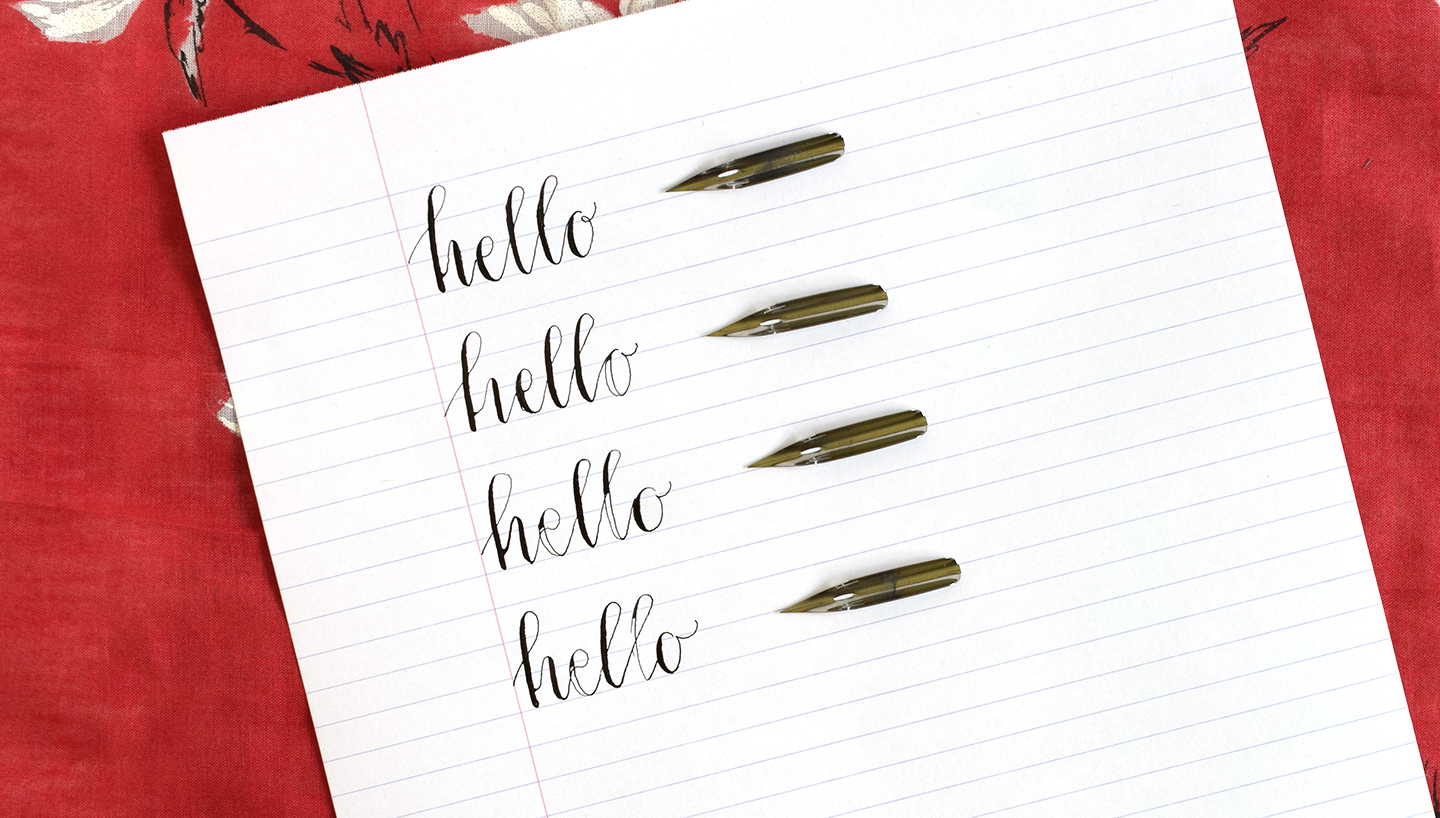 hello
hello
hello
hello